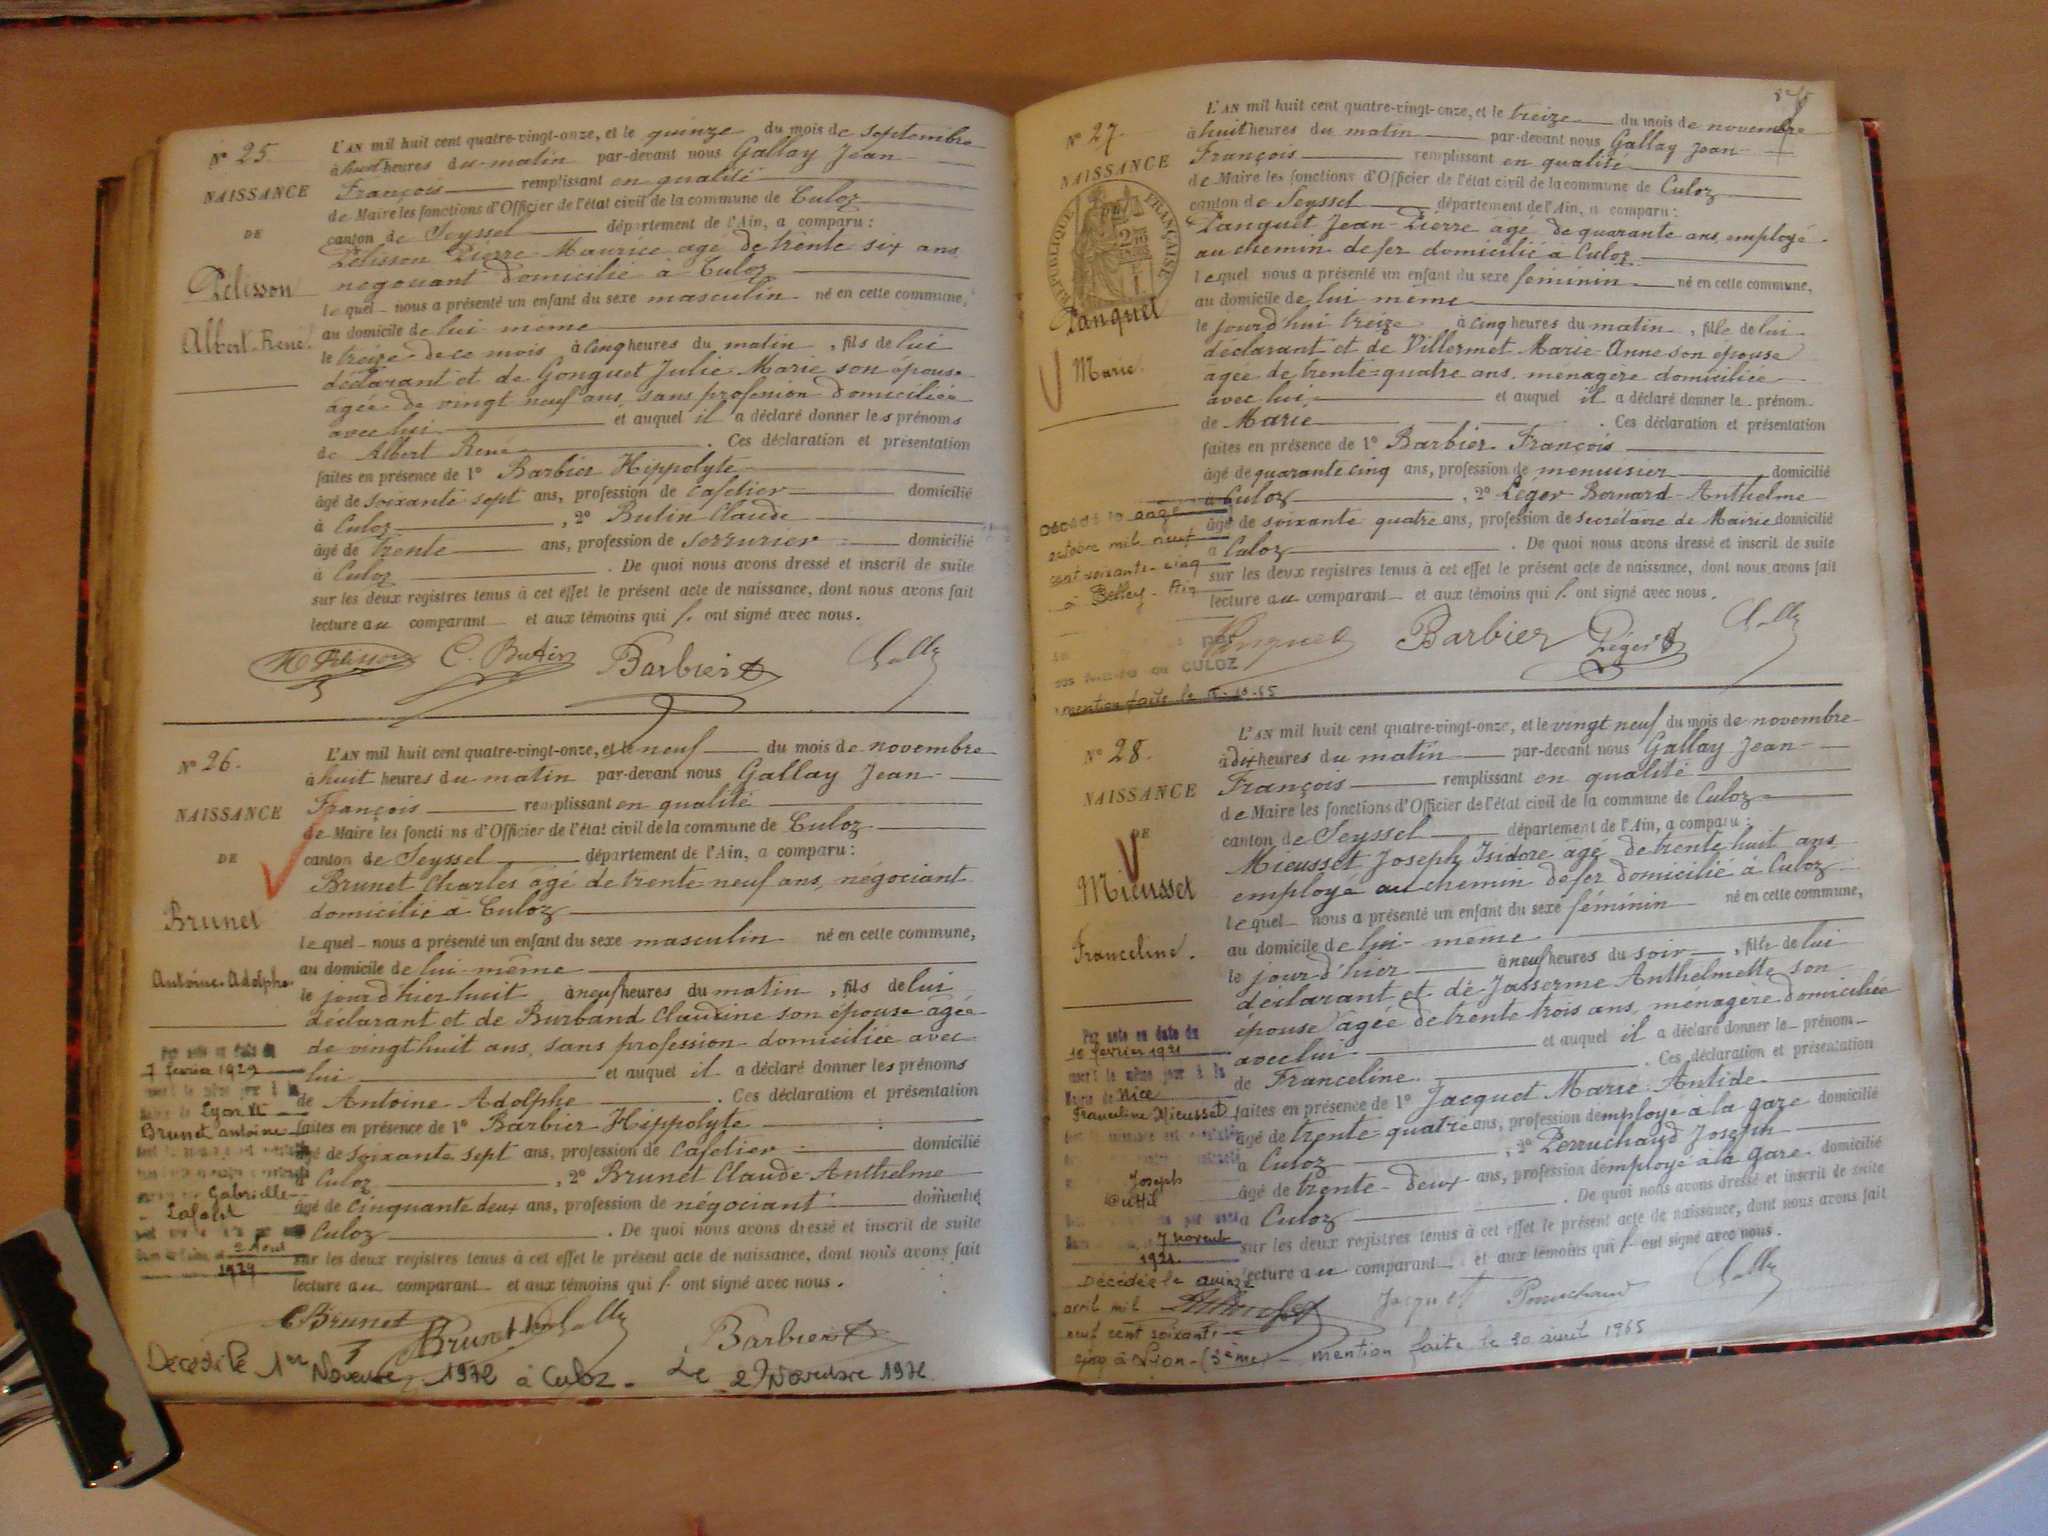 N° 25.
NAISSANCE
DE
Pelisson
Albert-René.
L'AN mil huit cent quatre-vingt-onze, et le quinze du mois de septembre
à huit heures du matin par-devant nous Gallay Jean
François remplissant en qualité
de Maire les fonctions d'Officier de l'état civil de la commune de Culoz
canton de Seyssel département de l'Ain, a comparu :
Pelisson Pierre Maurice agé de trente six ans,
négociant domicilié à Culoz
lequel nous a présenté un enfant du sexe masculin né en cette commune,
au domicile de lui même
le treize de ce mois à cinq heures du matin, fils de lui
déclarant et de Gonguet Julie Marie son épouse
agée de vingt neuf ans, sans profession domiciliée
avec lui et auquel il a déclaré donner les prénoms
de Albert René. Ces déclaration et présentation
faites en présence de 1° Barbier Hippolyte
âgé de soixante sept ans, profession de cafetier domicilié
à Culoz, 2° Butin Claude
âgé de trente ans, profession de serrurier domicilié
à Culoz. De quoi nous avons dressé et inscrit de suite
sur les deux registres tenus à cet effet le présent acte de naissance, dont nous avons fait
lecture au comparant et aux témoins qui ont signé avec nous.
M Pelisson C. Butin Barbier Gallay
N° 26.
NAISSANCE
DE
Brunet
Antoine-Adolphe
L'AN mil huit cent quatre-vingt-onze, et le neuf du mois de novembre
à huit heures du matin par-devant nous Gallay Jean
François remplissant en qualité
de Maire les foncti ns d'Officier de l'état civil de la commune de Culoz
canton de Seyssel département de l'Ain, a comparu :
Brunet Charles agé de trente neuf ans, négociant
domicilié à Culoz
lequel nous a présenté un enfant du sexe masculin né en cette commune,
au domicile de lui-même
le jour d'hier huit à neuf heures du matin, fils de lui
déclarant et de Burband Claudine son épouse agée
de vingt huit ans, sans profession domiciliée avec
lui et auquel il a déclaré donner les prénoms
de Antoine Adolphe. Ces déclaration et présentation
faites en présence de 1° Barbier Hippolyte
âgé de soixante sept ans, profession de cafetier domicilié
à Culoz, 2° Brunet Claude Anthelme
âgé de cinquante deux ans, profession de négociant domicilié
à Culoz. De quoi nous avons dressé et inscrit de suite
sur les deux registres tenus à cet effet le présent acte de naissance, dont nous avons fait
lecture au comparant et aux témoins qui ont signé avec nous.
7 février 1929
Lyon
Brunet antoine
Gabrielle
Lafont
2 Août
1929
C Brunet Brunet Gallay Barbier
Décédé le 1er Novembre 1972 à Culoz - Le 2 Novembre 1972.
N° 27.
NAISSANCE
RÉPUBLIQUE FRANÇAISE
Panquet
Marie.
L'AN mil huit cent quatre-vingt-onze, et le treize du mois de novembre
à huit heures du matin par-devant nous Gallay Jean
François remplissant en qualité
de Maire les fonctions d'Officier de l'état civil de la commune de Culoz
canton de Seyssel département de l'Ain, a comparu :
Panquet Jean-Pierre agé de quarante ans, employé
au chemin de fer domicilié à Culoz
lequel nous a présenté un enfant du sexe féminin né en cette commune,
au domicile de lui même
le jour d'hui treize à cinq heures du matin, fille de lui
déclarant et de Villermet Marie Anne son épouse
agée de trente-quatre ans, ménagère domiciliée
avec lui, et auquel il a déclaré donner le prénom
de Marie. Ces déclaration et présentation
faites en présence de 1° Barbier François
âgé de quarante cinq ans, profession de menuisier domicilié
à Culoz, 2° Léger Bernard-Anthelme
âgé de soixante quatre ans, profession de secrétaire de Mairie domicilié
à Culoz. De quoi nous avons dressé et inscrit de suite
sur les deux registres tenus à cet effet le présent acte de naissance, dont nous avons fait
lecture au comparant et aux témoins qui ont signé avec nous.
Décédé le onze
octobre mil neuf
cent soixante-cinq
à Belley - Ain
CULOZ
mention faite le
Panquet Barbier Léger Gallay
N° 28.
NAISSANCE
DE
Mieusset
Franceline.
L'AN mil huit cent quatre-vingt-onze, et le vingt neuf du mois de novembre
à dix heures du matin par-devant nous Gallay Jean
François remplissant en qualité
de Maire les fonctions d'Officier de l'état civil de la commune de Culoz
canton de Seyssel département de l'Ain, a comparu :
Mieusset Joseph Isidore agé de trente huit ans,
employé au chemin de fer domicilié à Culoz
lequel nous a présenté un enfant du sexe féminin né en cette commune,
au domicile de lui-même
le jour d'hier à neuf heures du soir, fille de lui
déclarant et de Jasserme Anthelmette son
épouse agée de trente trois ans, ménagère domiciliée
avec lui et auquel il a déclaré donner le prénom
de Franceline. Ces déclaration et présentation
faites en présence de 1° Jacquet Marie Antide
âgé de trente-quatre ans, profession d'employé à la gare domicilié
à Culoz, 2° Perruchaud Joseph
âgé de trente-deux ans, profession d'employé à la gare domicilié
à Culoz. De quoi nous avons dressé et inscrit de suite
sur les deux registres tenus à cet effet le présent acte de naissance, dont nous avons fait
lecture au comparant et aux témoins qui ont signé avec nous.
Par acte en date du
10 février 1921
inscrit le même jour à la
Mairie de Nice
Franceline Mieusset
Joseph
7 novemb
1921.
Jacquet Perruchaud Gallay
Décédée le quinze
avril mil
neuf cent soixante
cinq à Lyon (3ème) - mention faite le 20 avril 1965